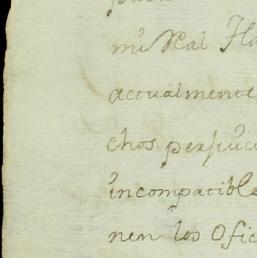 mi Real Ha
actualmente
chos perjuici
incompatible
nen los Ofic